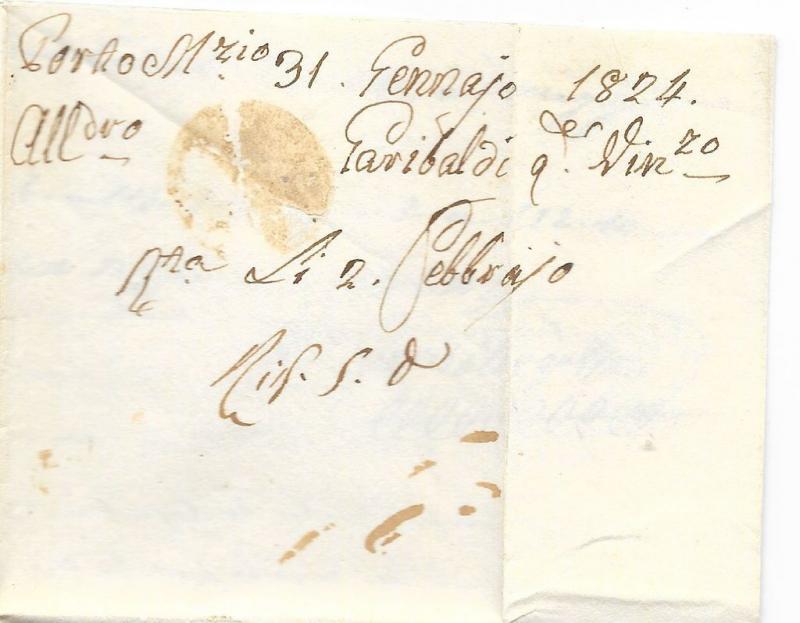 Porto Mrzio 31. Gennajo 1824.
Alldro Garibaldi q. Vinzo
Rta Li 2. Febbrajo
Ris. 5. d